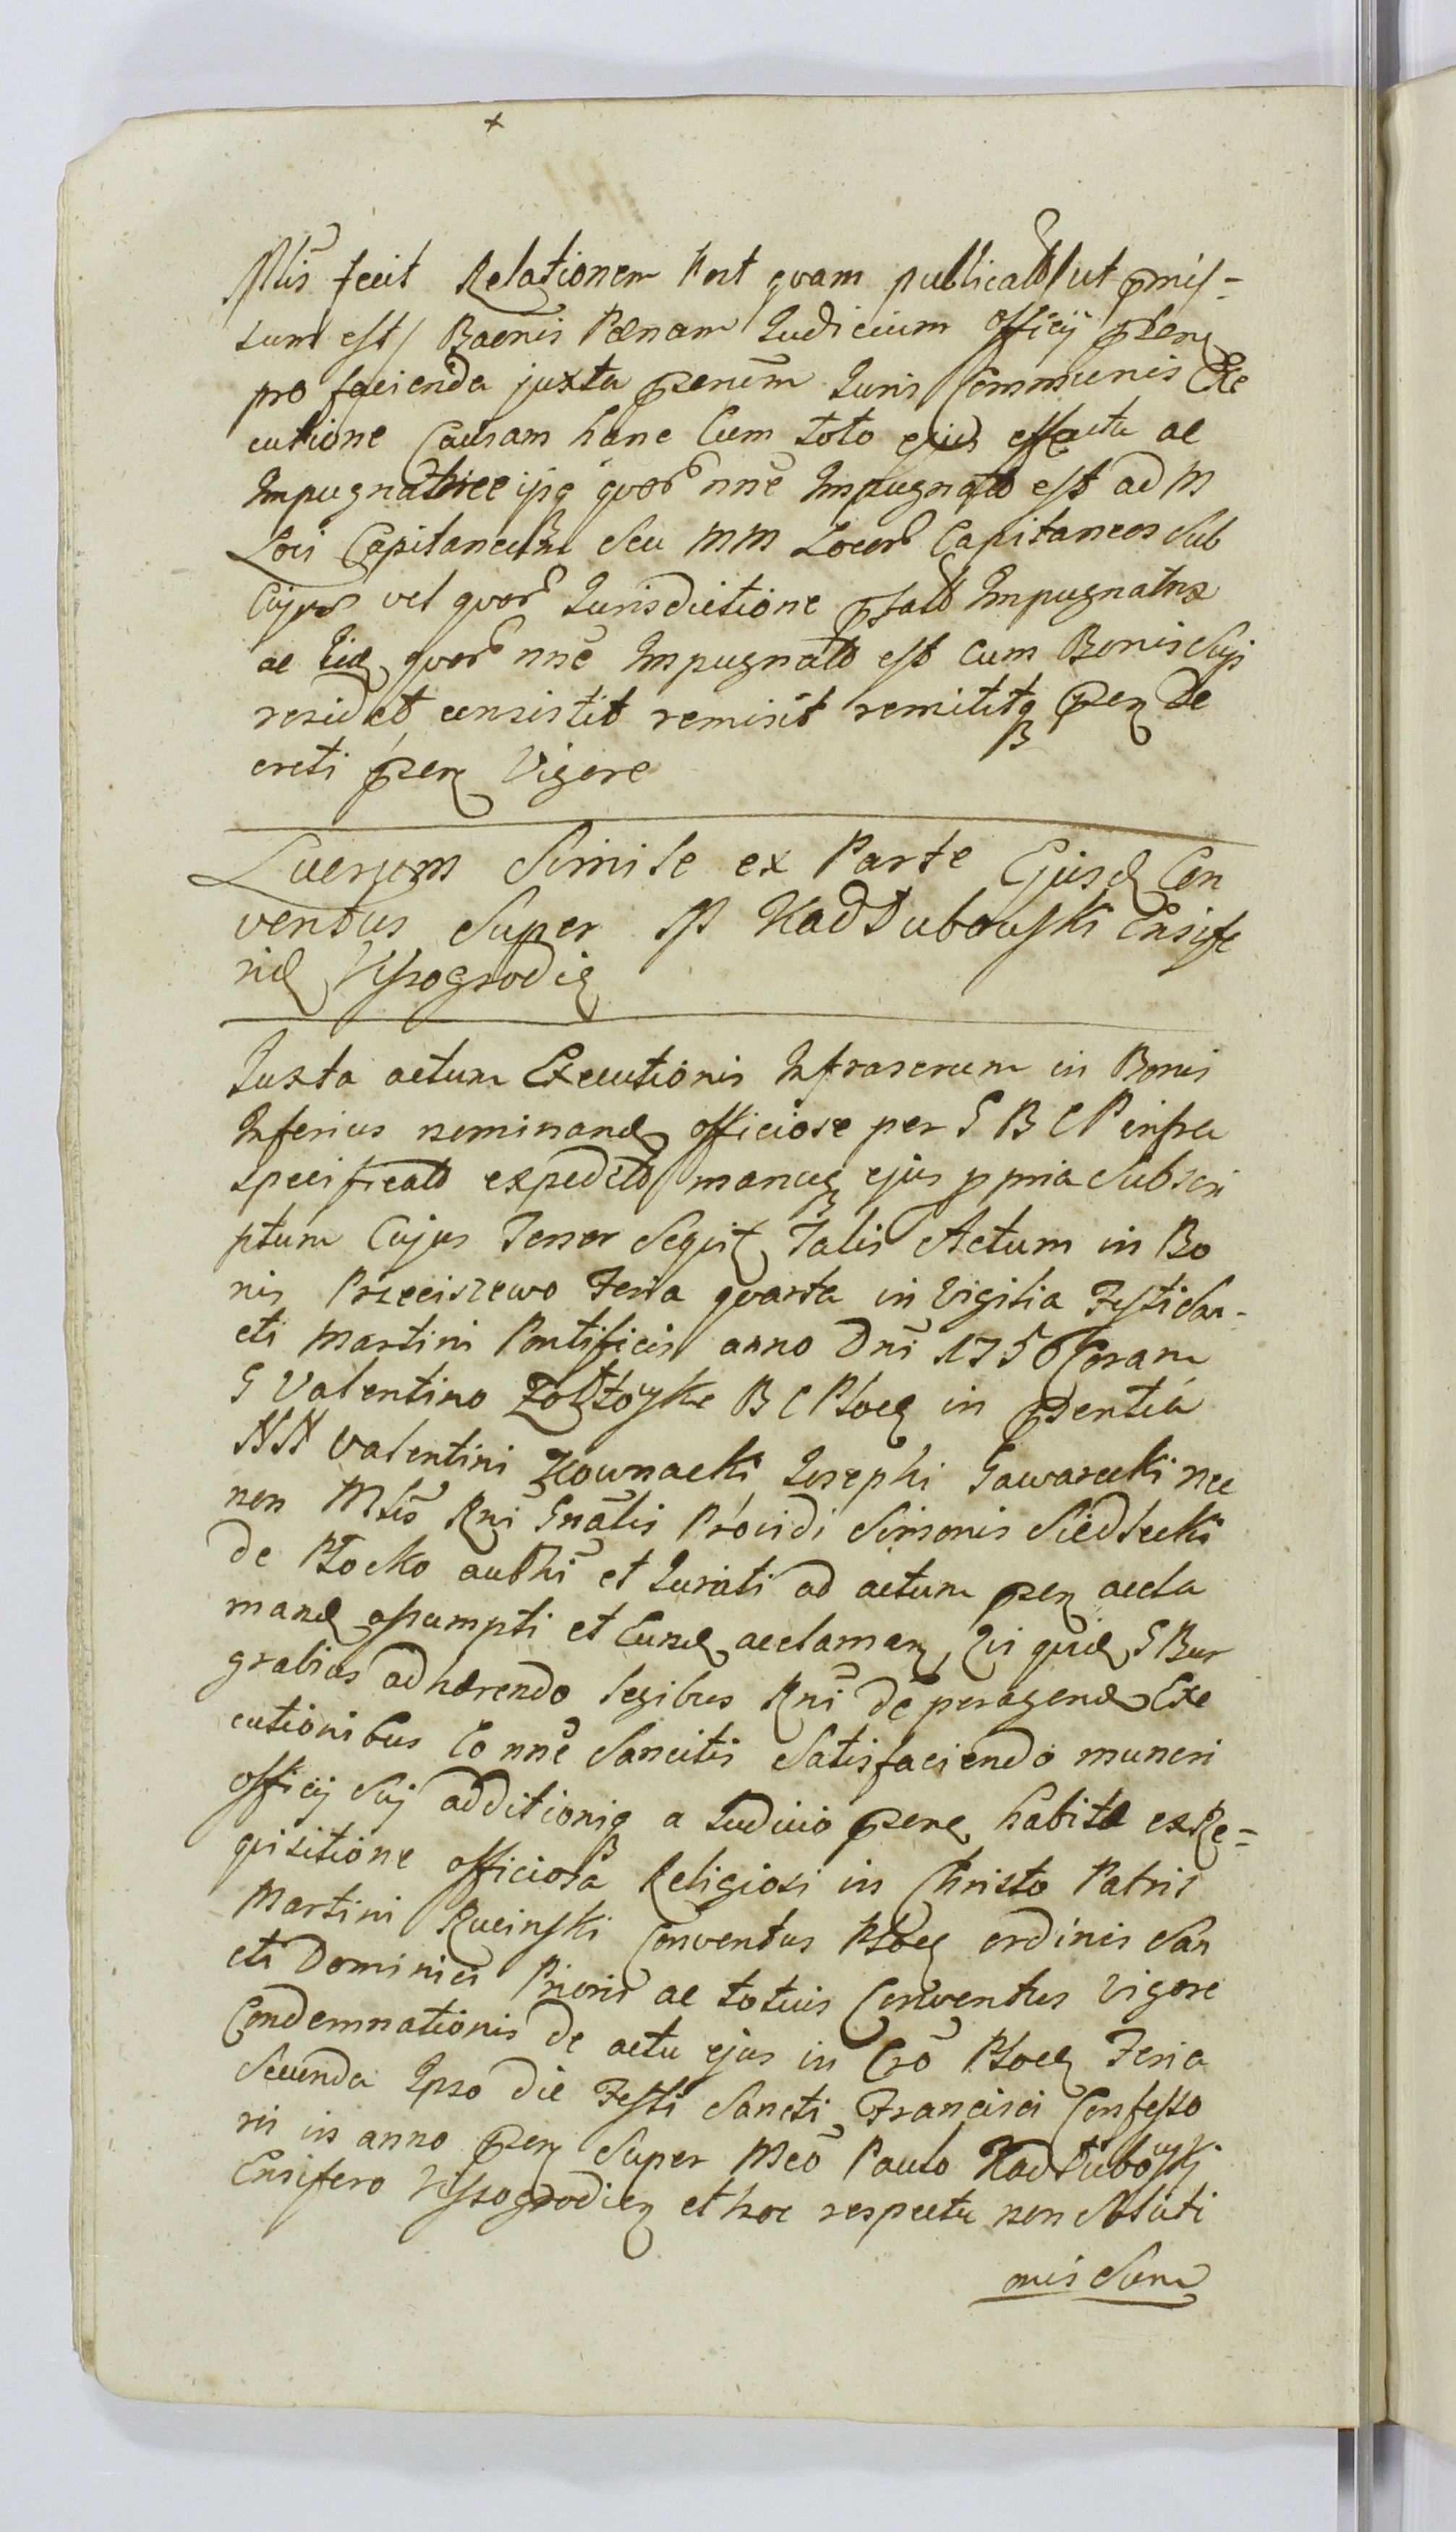 Mlis fecit Relationem Post qvam publicatã ut pmis=
sum est / Baenis Pænam Iudicium Officij psenę
pro facienda juxta psenēm Iuris Communis Exe
cutione Causam hanc Cum toto ejus effectu ac
Impugnatrice ijsq qvoȓ nñe Impugnatȓ est ad M
Loci Capitaneum Seu MM Locoȓ Capitaneos Sub
Cujus vel qvoȓ Iurisdictione Impugnatrix
ac qvoȓ nñe Impugnatȓ est cum Bonis Suis
residet consistit remisit remititq psen De
creti psen Vigore
Lucrum Simile ex Parte Ejusd Con
ventus Super M Kadłubowski Ensife
rid Vyssogrodię
Iuxta actum Executionis Infrascrum in Bonis
Inferius nominand officiose per G B C P infra
specificatȓ expeditȓ manuq ejus ppria Subscri
ptum Cujus Tenor Seqvit Talis Actum in Bo
nis Przeciszewo Feria qvarta in Vigilia Festi San-
cti Martini Pontificis anno Dñi 1756 Coram
G Valentino Zołtowske B C Płocę in psentia
NN Valentini Kownacki Iosephi Gawarecki nec
non Mlis Rñi Gñalis Providi Simonis Siedlecki
de Płocko authi et Iurati ad actum psen accla
mand assumpti et Eund acclaman, Qvi qvid G Bur
grabius adhærendo legibus Rñi de peragend Exe
cutionibus Eo nñe Sancitis Satisfaciendo muneri
officij Suj additioniq a Iudicio psenę habitæ ex Re=
qvisitione officiosa Religiosi in Christo Patris
Martini Rucinski Conventus Płocę ordinis San
cti Dominici Prioris ac totius Conventus vigore
Condemnationis de actu ejus in Cro Płocę Feria
Secunda Ipso die Festi Sancti Francisci Confesso
ris in anno psen Super Mco Paulo Kadłubowskj
Ensifero Vyssogrodięn et hoc respectu non Soluti
onis Sum